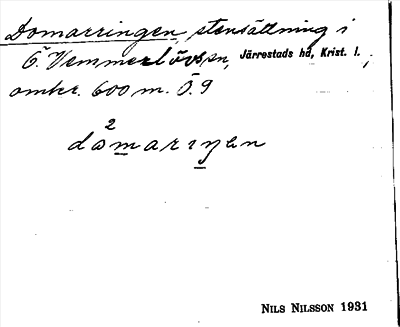 Domarringen, stensättning i
Ö. Vemmerlövs sn, Järrestads hd, Krist. l.,
omkr. 600 m. Ö. 9
2
domarıŋen
NILS NILSSON 1931